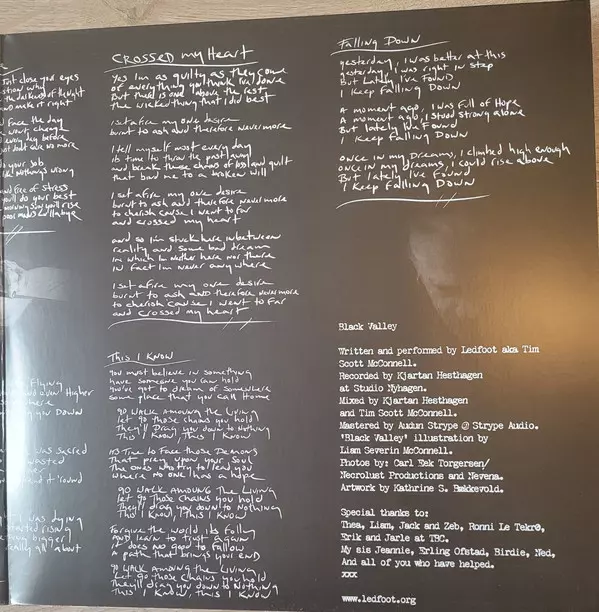 Just close your eyes
the darkness of the night
and make it right
face the day
every day before
just don't care no more
your job
nothings wrong
and free of stress
you'll do your best
Flying
and even Higher
where
you DOWN
was sacred
wasted
'round
was dying
started rising
bigger
really all about
CROSSED my HEART
Yes I'm as guilty as they come
of everything you think I've done
But there is one above the rest
the wicked thing that I did best
I set afire my one desire
burnt to ash and therefore nevermore
I tell myself most every day
its time to throw the past away
and break these chains of loss and guilt
that bind me to a broken will
I set afire my one desire
burnt to ash and therefore nevermore
to cherish cause I went to far
and crossed my heart
and so I'm stuck here inbetween
reality and some bad dream
in which I'm neither here nor there
in fact I'm never anywhere
I set afire my one desire
burnt to ash AND therefore nevermore
to cherish cause I went to far
and crossed my heart
This I KNOW
you must believe in something
have someone you can hold
you've got to dream of somewhere
some place that you call Home
go WALK AMOUNG the LIVING
let go those chains you hold
They'll DRAG you down to Nothing
This I KNOW, this I KNOW
its Time to Face those Demons
That prey upon your soul
The ones who try to lead you
where no one has a hope
go WALK AMOUNG the LIVING
let go those chains you hold
They'll drag you down to NOTHING
This I KNOW, this I KNOW
Forgive the world its folly
and learn to trust again
it does no good to follow
a path that brings you END
go WALK AMOUNG the LIVING
Let go those chains you hold
They'll drag you down to Nothing
This I KNOW, this I KNOW
Falling Down
yesterday, I was better at this
yesterday, I was right in step
But Lately I've Found
I Keep Falling Down
A moment ago, I was full of Hope
A moment ago, I stood strong alone
But lately I've Found
I Keep Falling Down
once in my Dreams, I climbed high enough
once in my dreams, I could rise above
But lately I've Found
I Keep Falling Down
Black Valley
Written and performed by Ledfoot aka Tim
Scott McConnell.
Recorded by Kjartan Hesthagen
at Studio Nyhagen.
Mixed by Kjartan Hesthagen
and Tim Scott McConnell.
Mastered by Audun Strype @ Strype Audio.
'Black Valley' illustration by
Liam Severin McConnell.
Photos by: Carl Eek Torgersen/
Necrolust Productions and Nevena.
Artwork by Kathrine S. Bækkevold.
Special thanks to:
Thea, Liam, Jack and Zeb, Ronni Le Tekrø,
Erik and Jarle at TBC.
My sis Jeannie, Erling Ofstad, Birdie, Ned,
And all of you who have helped.
xxx
www.ledfoot.org